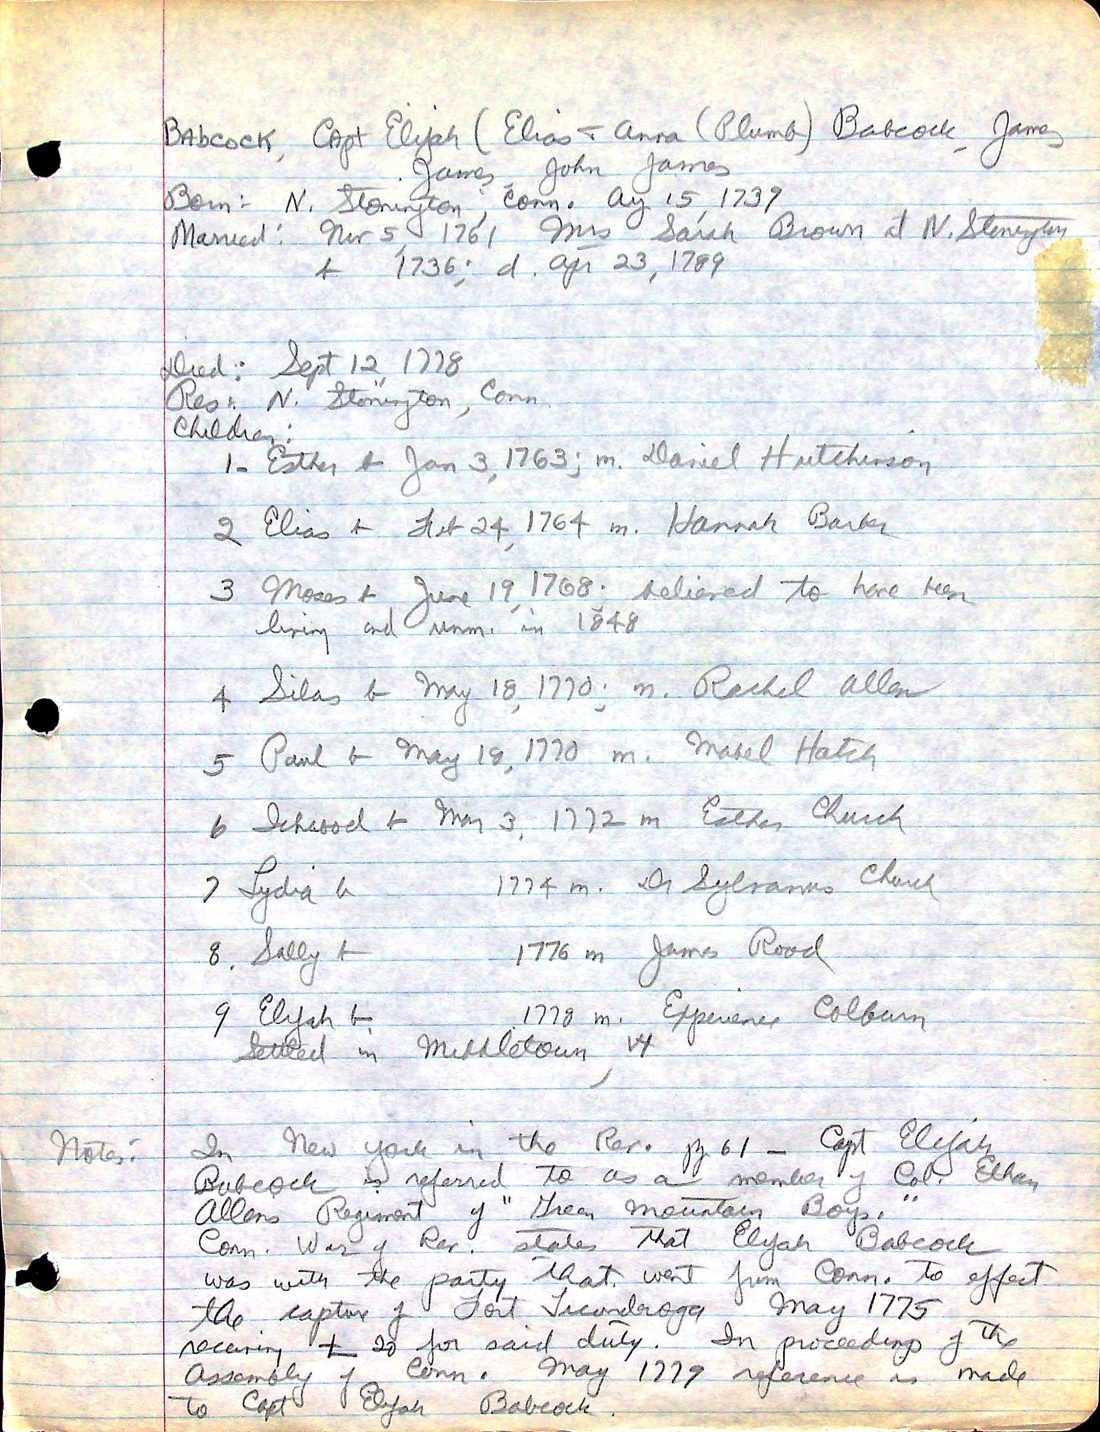 BAbcock, Capt Elijah (Elias + Anna (Plumb) Babcock, James
James, John James
Born: N. Stonington, Conn. Ag 15, 1739
Married: Nov 5, 1761 Mrs Sarah Brown at N. Stonington
b 1736; d. Apr 23, 1789
Died: Sept 12, 1778
Res: N. Stonington, Conn
Children:
1- Esther b Jan 3, 1763; m. Daniel Hutchinson
2 Elias b Feb 24, 1764 m. Hannah Barker
3 Moses b June 19, 1768; believed to have been
living and unm. in 1848
4 Silas b May 18, 1770; m. Rachel Allen
5 Paul b May 18, 1770 m. Mabel Hatch
6 b Mar 3, 1772 m Esther Church
7 Lydia b 1774 m. Dr Sylvanus Church
8. Sally b 1776 m James Rood
9 Elijah b. 1778 m. Experience Colburn
Settled in Middletown, Vt
Notes: In New York in the Rev. pg 61 - Capt Elijah
Babcock is referred to as a member of Col. Ethan
Allens Regiment of "Green Mountain Boys."
Conn. War of Rev. states that Elijah Babcock
was with the party that went from Conn. to effect
the capture of Fort Ticonderoga May 1775
receiving £ 20 for said duty. In proceedings of the
Assembly of Conn. May 1779 reference is made
to Capt Elijah Babcock.